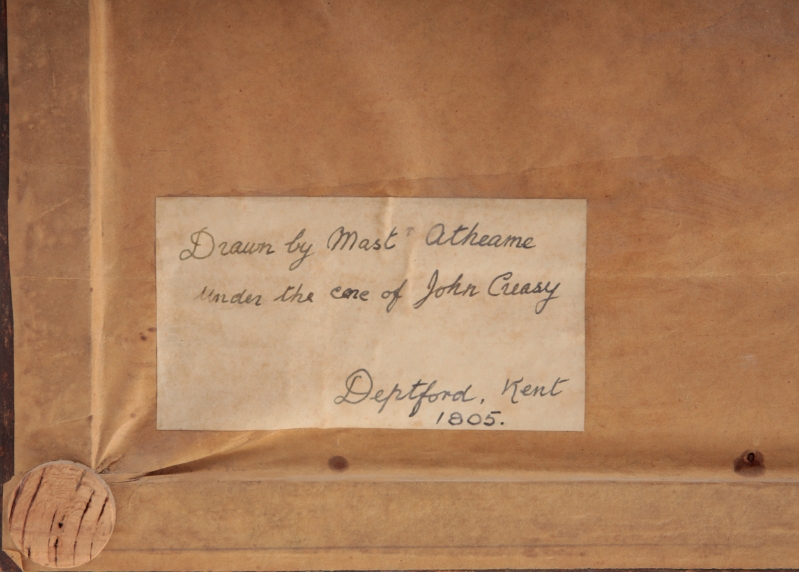 Drawn by Mast.r Atheame
under the care of John Creasy
Deptford, Kent
1805.